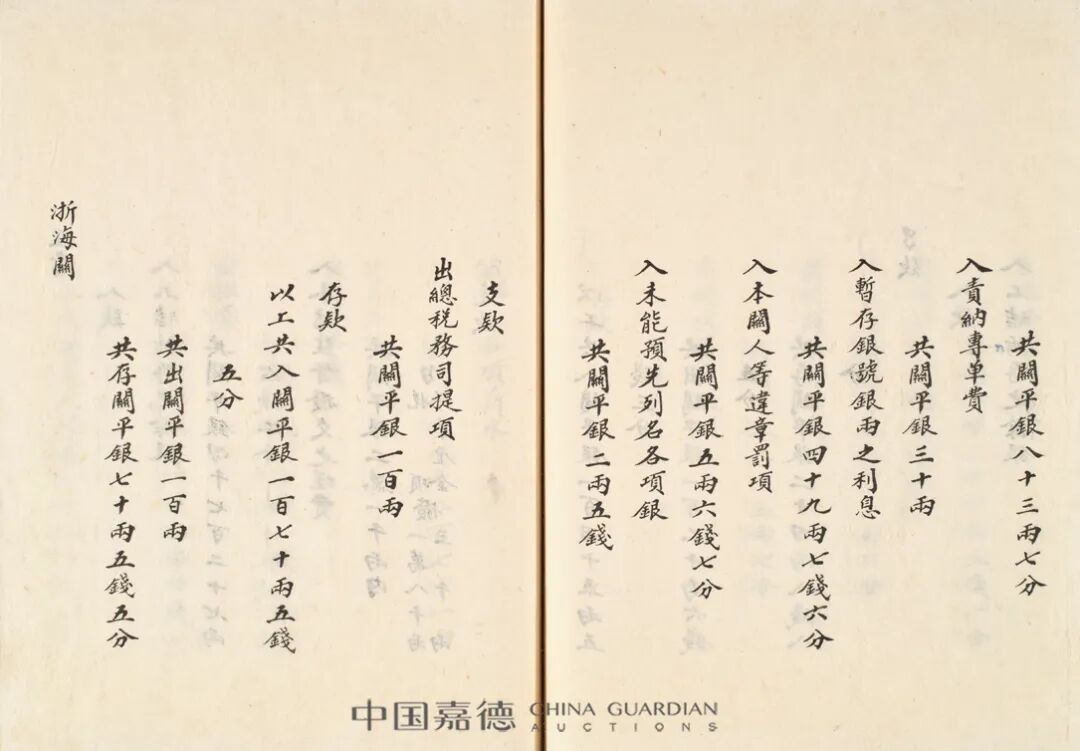 共關平銀八十三兩七分
入責納專單費
共關平銀三十兩
入暫存銀號銀兩之利息
共關平銀四十九兩七錢六分
入本關人等違章罰項
共關平銀五兩六錢七分
入未能預先列名各項銀
共關平銀二兩五錢
支欵
出總稅務司提項
共關平銀一百兩
存欵
以上共入關平銀一百七十兩五錢
五分
共出關平銀一百兩
共存關平銀七十兩五錢五分
浙海關
中国嘉德 CHINA GUARDIAN
AUCTIONS